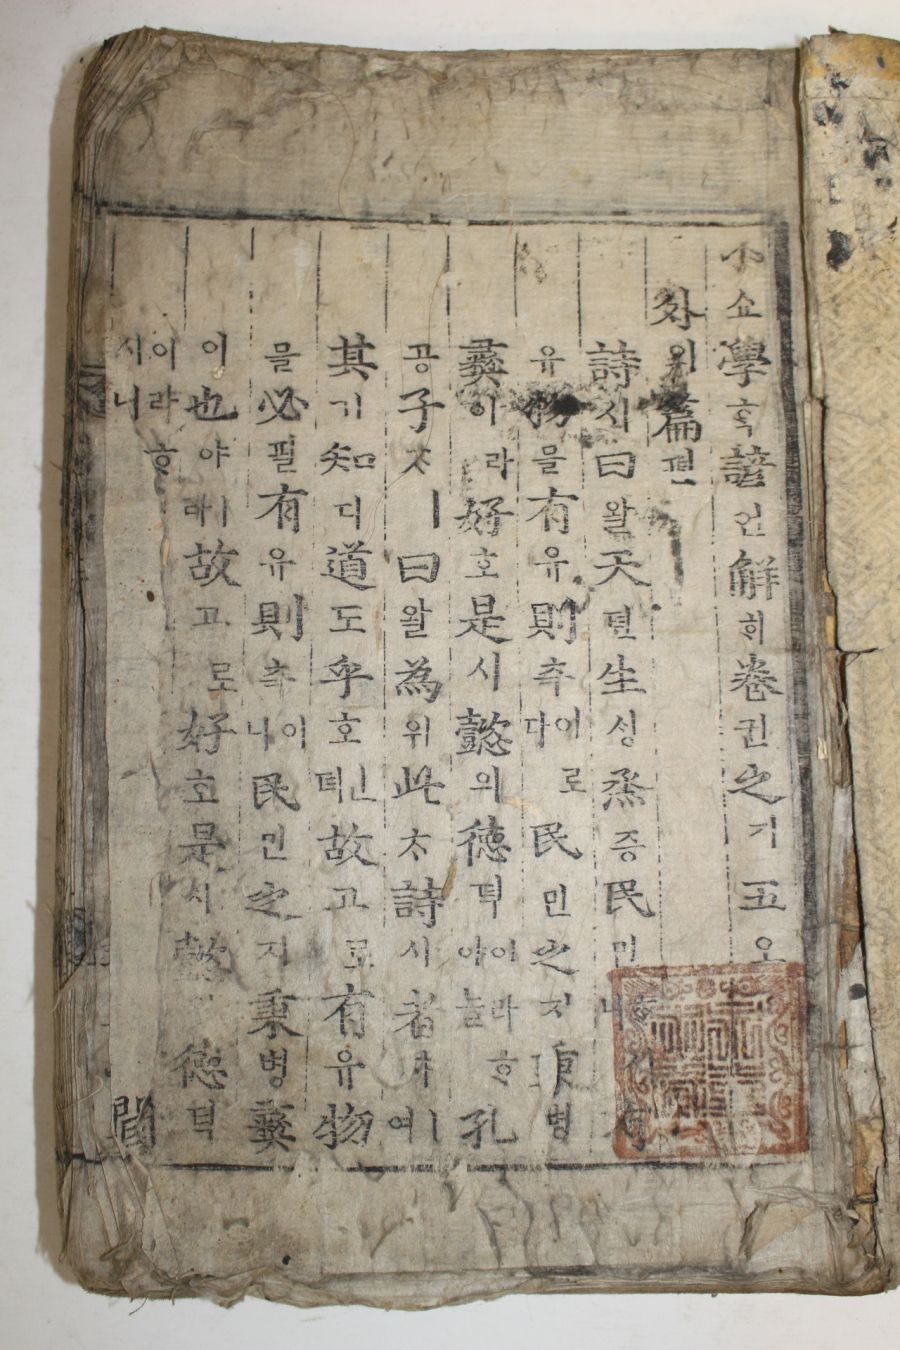 小쇼學ᄒᆞᆨ諺언解ᄒᆡ卷권之지五오
外외篇편
詩시曰왈天텬生ᄉᆡᆼ烝증民민
유物믈을有유則측이로다民민之지秉병
彝이라好호是시懿의德덕이라ᄒᆞ야ᄂᆞᆯ孔
공子ᄌᆞㅣ曰왈爲위此ᄎᆞ詩시者쟈ㅣ여
其기知디道도乎호ㅣᆫ뎌故고로有유物
믈必필有유則측이니民민之지秉병彝
이也야ㅣ라故고로好호是시懿德덕
이라ᄒᆞ시니 間